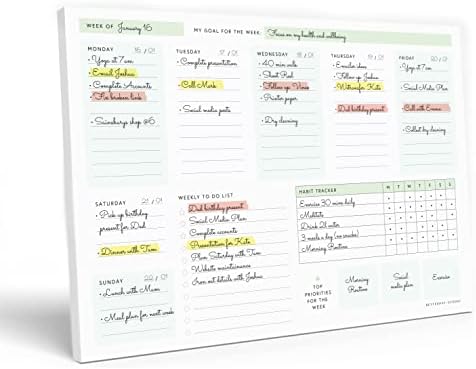 WEEK OF January 16
MY GOAL FOR THE WEEK: Focus on my health and wellbeing
MONDAY 16 / 01
Yoga at 7am
Email Joshua
Complete Accounts
Fix broken link
Sainsburys shop @6
TUESDAY 17 / 01
Complete presentation
Call Mark
Social media posts
WEDNESDAY 18 / 01
40 min walk
Shoot Reel
Follow up
Printer paper
Dry cleaning
THURSDAY 19 / 01
Follow up Joshua
Dad birthday present
FRIDAY 20 / 01
Yoga at 7am
Social Media Plan
Call with Emma
Collect dry cleaning
SATURDAY 21 / 01
Pick up birthday
present for Dad
Dinner with Tom
SUNDAY 22 / 01
Lunch with Mum
Meal plan for next week
WEEKLY TO DO LIST
Dad birthday present
Social Media Plan
Complete accounts
Presentation for Kate
Plan Saturday with Tom
Website maintenance
Iron out details with Joshua
HABIT TRACKER M T W T F S S
Exercise 30 mins daily
Meditate
Drink 2l water
3 meals a day (no snacks)
Morning Routine
TOP
PRIORITIES
FOR THE
WEEK
Morning
Routine
Social
media plan
Exercise